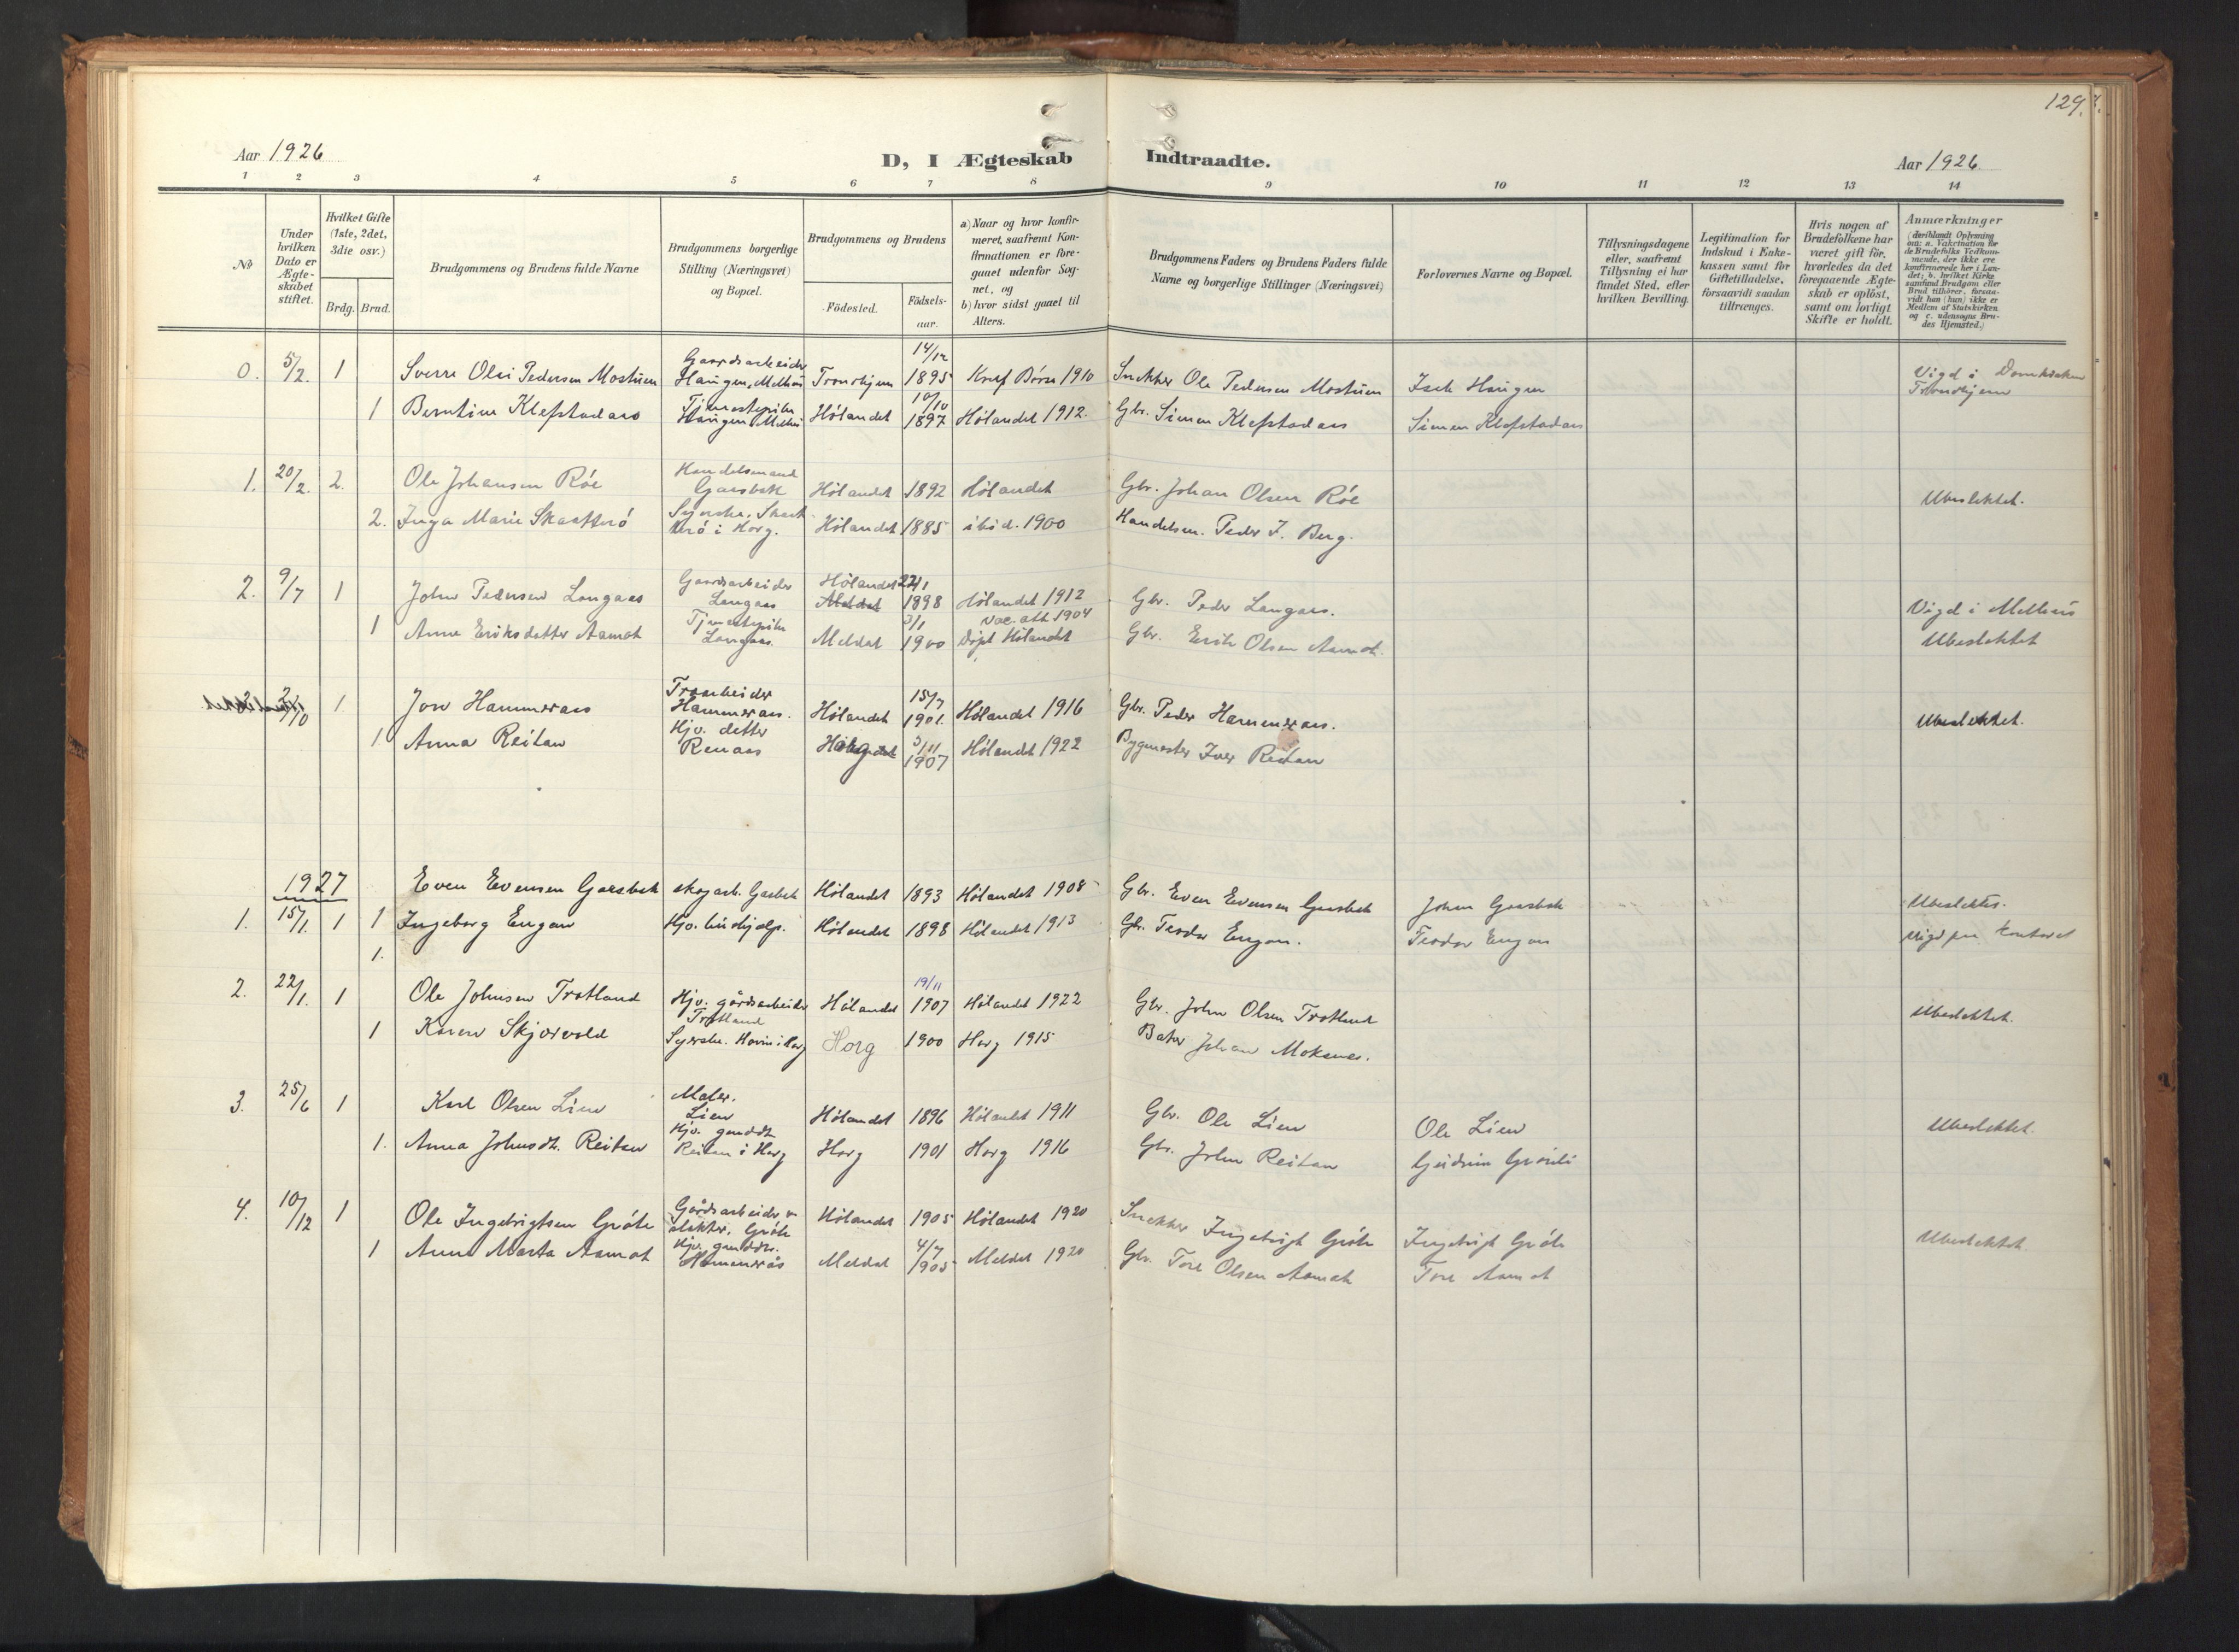 129.
Aar 1926
D, I Ægteskab Indtraadte.
Aar 1926.
1 2 3 4 5 6 7 8 9 10 11 12 13 14
No
Under hvilken Dato er Ægteskabet stiftet.
Hvilket Gifte (1ste, 2det, 3die osv.)
Brdg. Brud.
Brudgommens og Brudens fulde Navne
Brudgommens borgerlige Stilling (Næringsvei) og Bopæl.
Brudgommens og Brudens
Födested.
Födsels-aar.
a) Naar og hvor konfirmeret, saafremt Konfirmationen er foregaaet udenfor Sognet, og
b) hvor sidst gaaet til Alters.
Brudgommens Faders og Brudens Faders fulde Navne og borgerlige Stillinger (Næringsvei)
Forlovernes Navne og Bopæl.
Tillysningsdagene eller, saafremt Tillysning ei har fundet Sted, efter hvilken Bevilling.
Legitimation for Indskud i Enkekassen samt for Giftetilladelse, forsaavidt saadan tiltrænges.
Hvis nogen af Brudefolkene har været gift för, hvorledes da det foregaaende Ægteskab er oplöst, samt om lovligt Skifte er holdt.
Anmærkninger
(deriblandt Oplysning om: a. Vakcination for de Brudefolks Vedkommende, der ikke ere konfirmerede her i Landet; b. hvilket Kirkesamfund Brudgom eller Brud tilhörer, forsaavidt han (hun) ikke er Medlem af Statskirken og c. udensogns Brudes Hjemsted.)
0. 5/2. 1 Sverre Olai Pedersen Mostuen Gaardsarbeider Haugen, Melhus Trondhjem 14/12 1895 Konf Børse 1910 Snekker Ole Pedersen Mostuen Isak Haugen Vigd i Domkirken Trondhjem
1 Berntine Klefstadaas Tjenestepike Haugen Melhus Hölandet 10/10 1897 Hölandet 1912. Gbr. Simen Klefstadaas Simen Klefstadaas
1. 20/2. 2. Ole Johansen Röe Handelsmand Gaasbak Hölandet 1892 Hölandet Gbr. Johan Olsen Röe Ubeslektet.
2. Inga Marie Skattkrö i Horg. Hölandet 1885 ibid. 1900 Handelsm. Peder J. Berg.
2. 9/7 1 John Pedersen Langaas Gaardsarbeider Langaas Hölandet 22/1 1898 Hölandet 1912 Gbr. Peder Langaas. Vigd i Melhus
1 Anne Eriksdatter Aamot Tjenestepike Langaas. Meldal 3/1 1900 Vac. att. 1904 Döpt Hölandet Gbr. Erik Olsen Aamot. Ubeslektet
/10 1 Jon Hammeraas Hammeraas. Hölandet 15/7 1901. Hölandet 1916 Gbr. Peder Hammeraas. Ubeslektet.
1 Anna Reitan Hjv. datter Renaas Horg 3/11 1907 Hölandet 1922 Bygmester Iver Reitan
1927
Even Evensen Gaasbak skogarb. Gasbak Hölandet 1893 Hölandet 1908 Gbr. Even Evensen Gaasbak Johan Gaasbak Ubeslektet.
1. 15/1. 1 1 Ingeborg Engan Hjv. hushjelp. Hölandet 1898 Hölandet 1913 Gbr. Teodor Engan. Teodor Engan vigd paa kontoret
1.
2. 22/1. 1 Ole Johnsen Trotland Hjv. gårdsarbeider Trotland Hölandet 19/11 1907 Hölandet 1922 Gbr. John Olsen Trotland Ubeslektet.
1 Karen Skjærvold Syerske. Hovin i Horg Horg 1900 Horg 1915 Baker Johan Moksnes.
3. 25/6 1 Karl Olsen Lien Maler. Lien Hölandet 1896 Hölandet 1911 Gbr. Ole Lien Ole Lien Ubeslektet.
1. Anna Johnsdt. Reitan Hjv. gmddt. Reitan i Horg Horg 1901 Horg 1916 Gbr. John Reitan
4. 10/12 1 Ole Ingebrigtsen Gröte Gårdsarbeider Gröte Hölandet 1905 Hölandet 1920 Snekker Ingebrigt Gröte Ingebrigt Gröte Ubeslektet
1 Anne Marta Aamot Hjv. Hammerås Meldal 4/7 1905 Meldal 1920 Gbr. Tore Olsen Aamot Tore Aamot